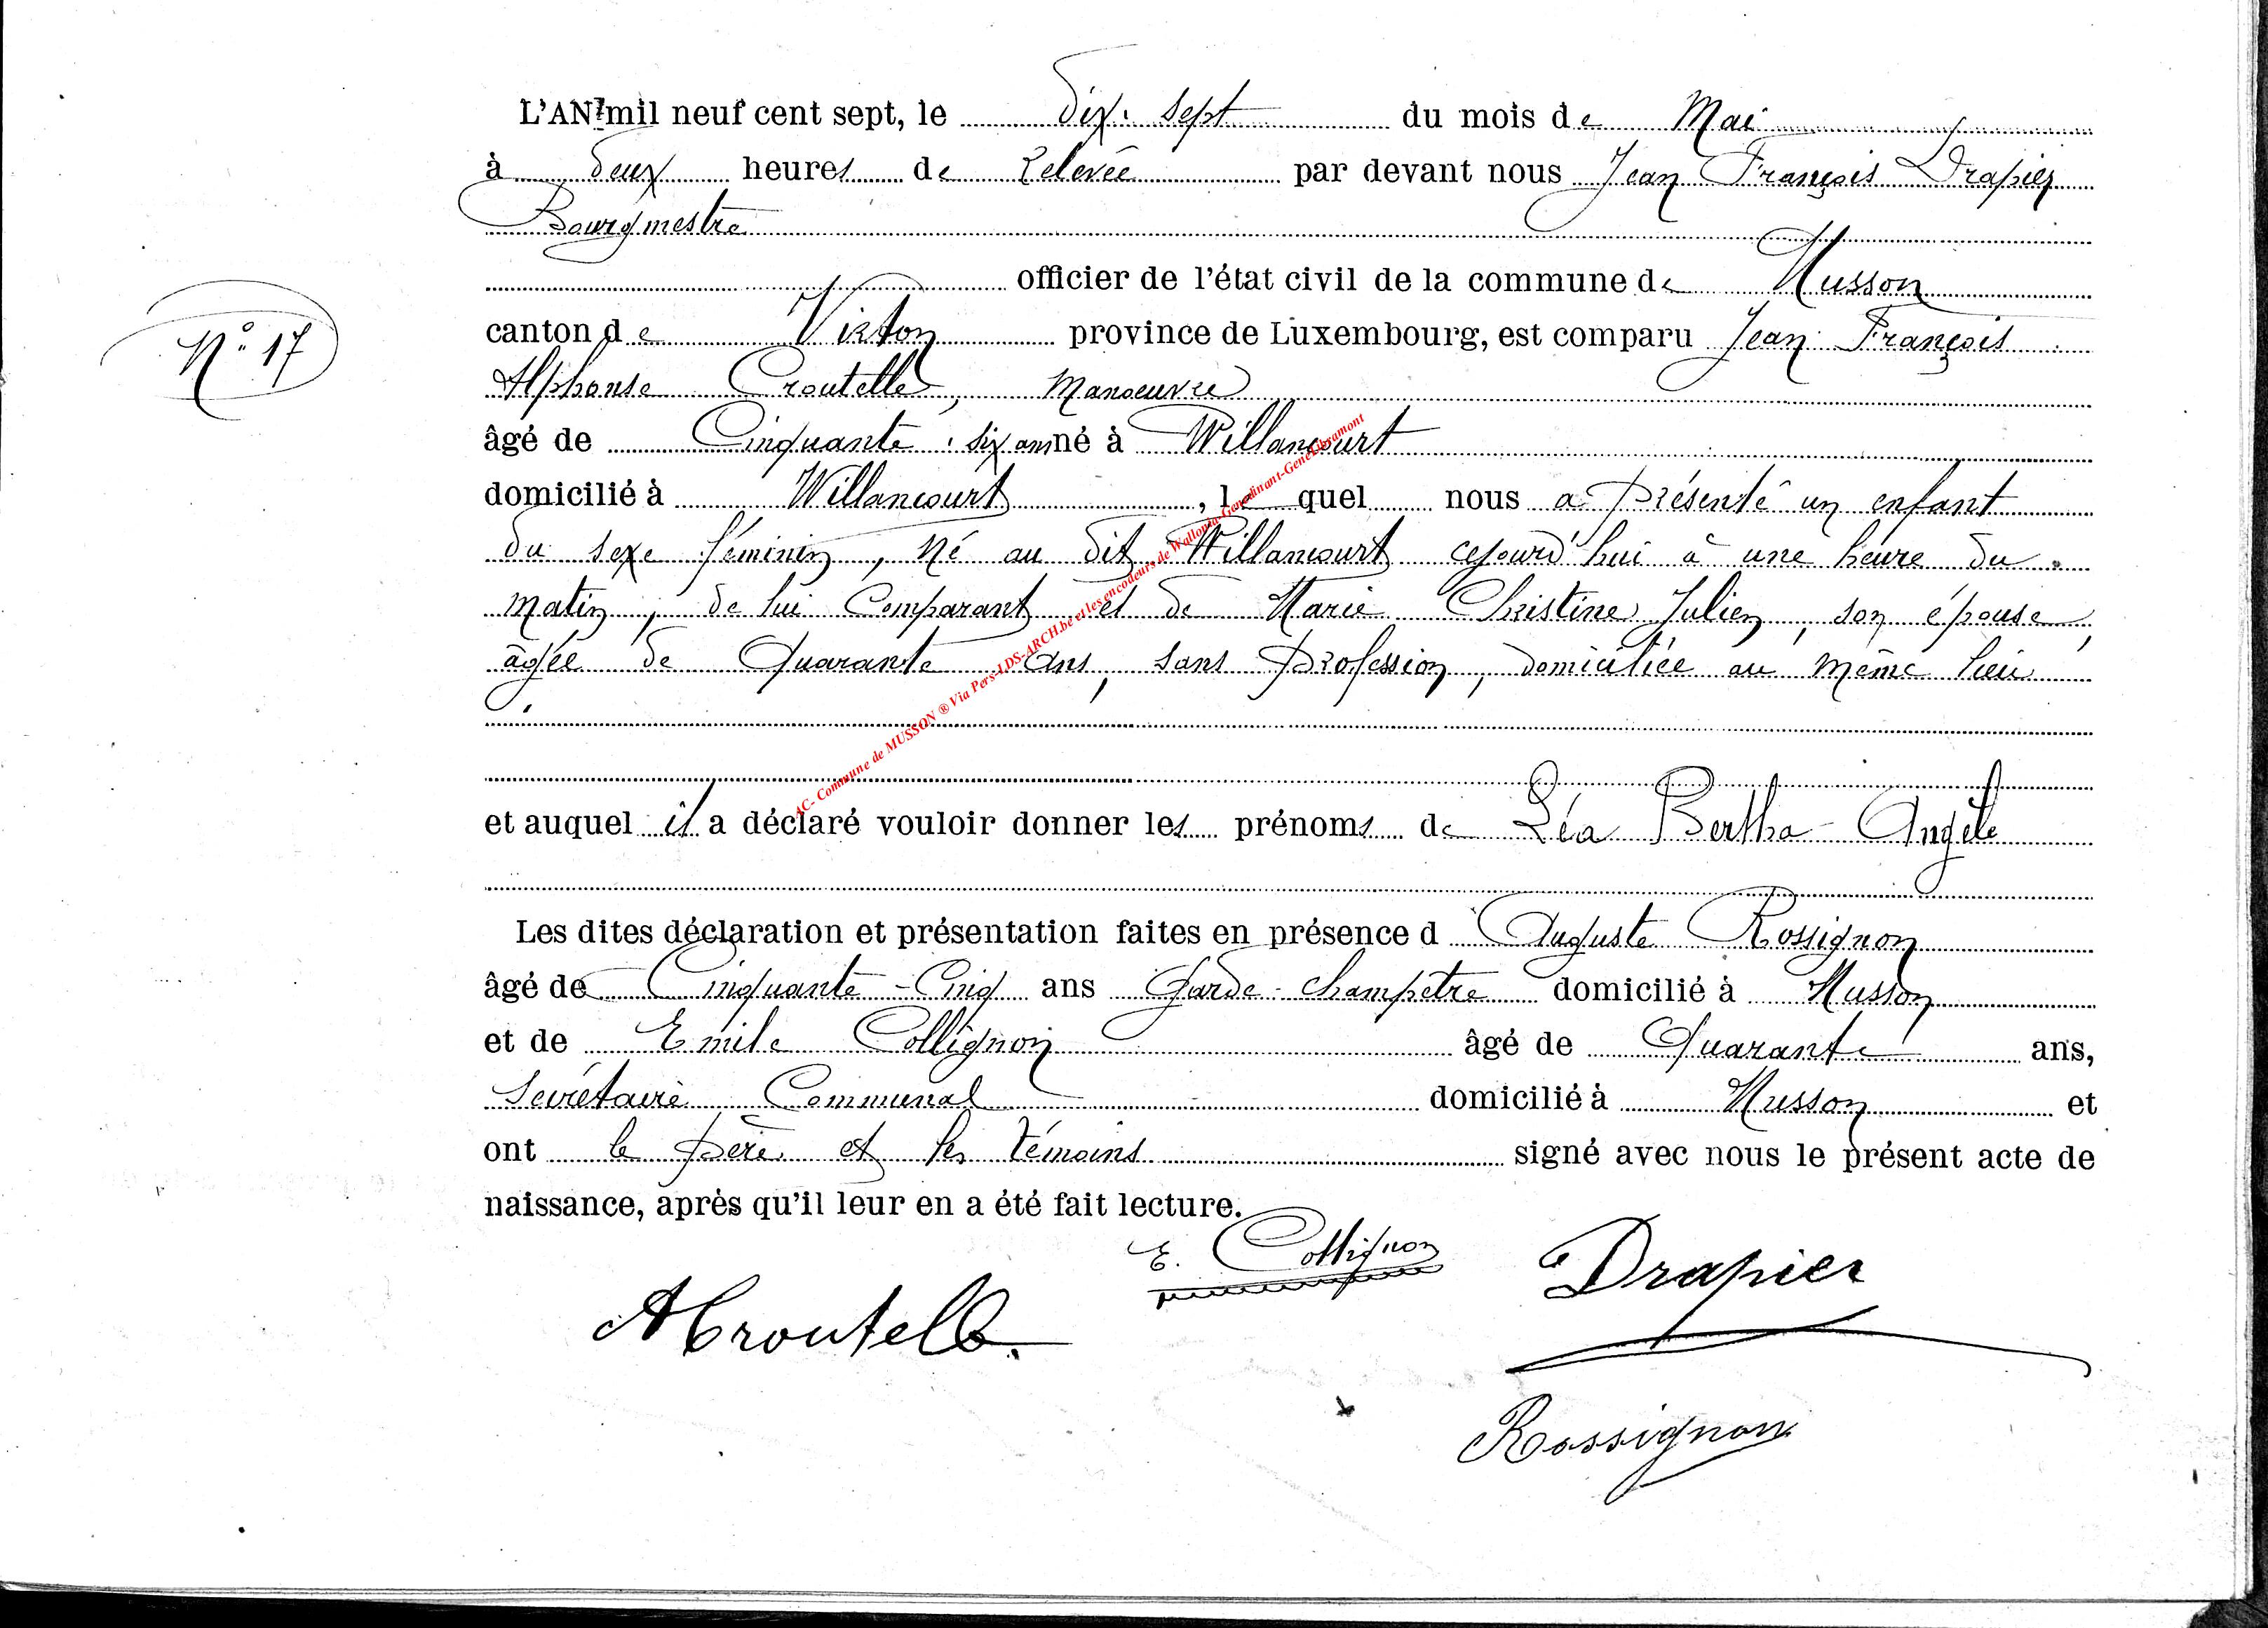 L'AN mil neuf cent sept, le dix-sept du mois de Mai
à deux heures de relevée par devant nous Jean François Drapier
Bourgmestre
officier de l'état civil de la commune de Musson
N° 17
canton de Virton province de Luxembourg, est comparu Jean François
Alphonse Croutelle, manoeuvre
âgé de Cinquante-six ans né à Willancourt
domicilié à Willancourt, lequel nous a présenté un enfant
du sexe féminin, né au dit Willancourt cejourd'hui à une heure du
matin, de lui Comparant et de Marie Christine Julien, son épouse,
âgée de Quarante ans, sans profession, domiciliée au même lieu
et auquel il a déclaré vouloir donner les prénoms de Léa Bertha-Angèle
Les dites déclaration et présentation faites en présence d Auguste Rossignon
âgé de Cinquante-Cinq ans Garde-champêtre domicilié à Musson
et de Emile Collignon âgé de Quarante ans,
Secrétaire Communal domicilié à Musson et
ont le père et les témoins signé avec nous le présent acte de
naissance, après qu'il leur en a été fait lecture.
E. Collignon
Drapier
A Croutelle.
Rossignon
AC- Commune de MUSSON ® Via Pers-LDS-ARCH.be et les encodeurs de Wallonia-Genedinant-GeneLibramont